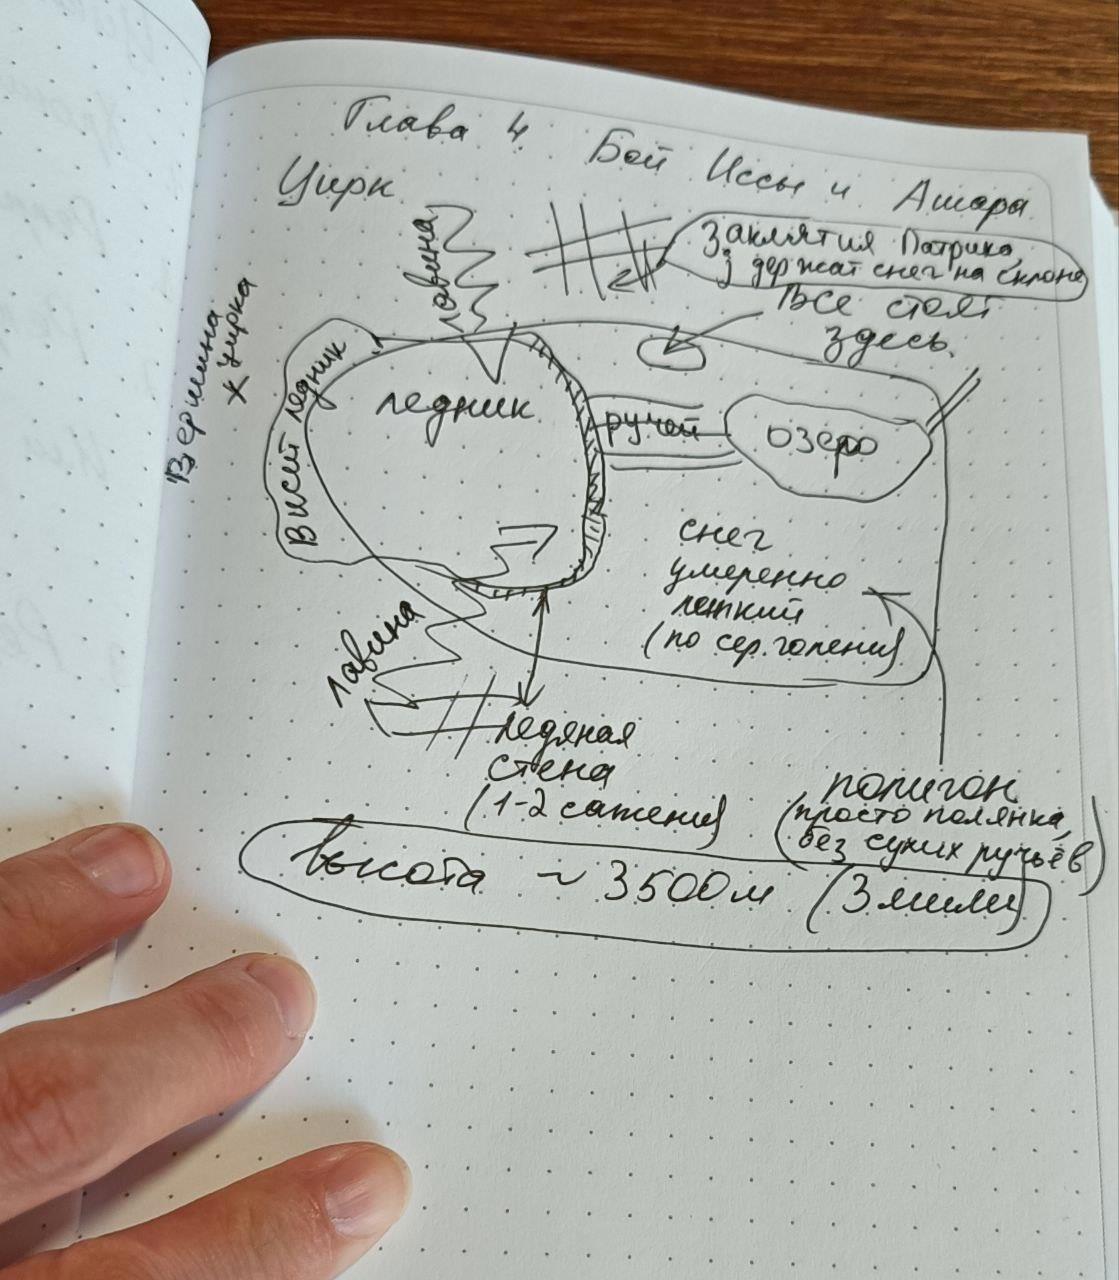 Глава 4. Бой Иссы и Ашара
Цирк
лавина
Заклятия Патрика,
держат снег на склоне
Все стоят
здесь.
Вершина
цирка
Висит ледник
ледник
ручей
озеро
снег
умеренно
легкий
(по сер. голени)
лавина
ледяная
стена
(1-2 сажени)
полигон
(просто полянка,
без сухих ручьёв)
Высота ~ 3500м (3 мили)